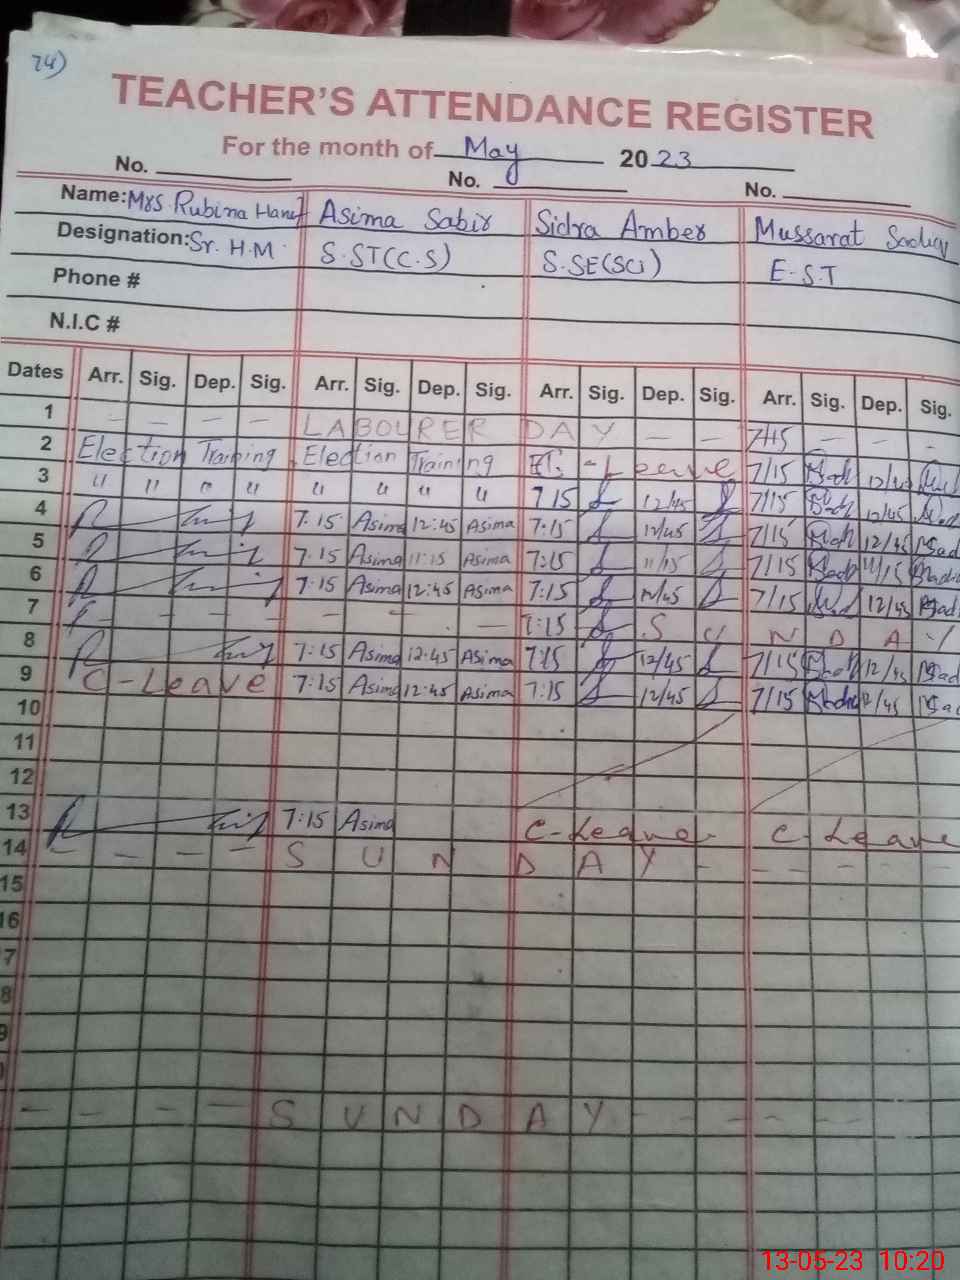 74)
TEACHER'S ATTENDANCE REGISTER
For the month of May 2023
No. No. No.
Name: Mrs Rubina Hanif Asima Sabir Sidra Amber Mussarat
Designation: Sr. H.M. S.ST(C.S) S.SE(SCi) E-S.T
Phone #
N.I.C #
Dates Arr. Sig. Dep. Sig. Arr. Sig. Dep. Sig. Arr. Sig. Dep. Sig. Arr. Sig. Dep. Sig.
1 - - - - LABOURER DAY - - 7H5 - - -
2 Election Training Election Training - Leave 7/15 12/45
3 " " " " " " " " 7 15 12/45 7/15 12/45
4 7:15 Asima 12:45 Asima 7:15 12/45 7/15 12/45
5 7:15 Asima 11:15 Asima 7:15 11/15 7/15 11/15
6 7:15 Asima 12:45 Asima 7:15 12/45 7/15 12/45
7 - - - - - 7:15 S U N D A Y
8 7:15 Asima 12:45 Asima 7:15 12/45 7/15 12/45
9 C-Leave 7:15 Asima 12:45 Asima 7:15 12/45 7/15 12/45
10
11
12
13 7:15 Asima C-Leave C Leave
14 - - - - S U N D A Y - - - - -
15
16
7
8
9
- - - - S U N D A Y - - - - -
13-05-23 10:20